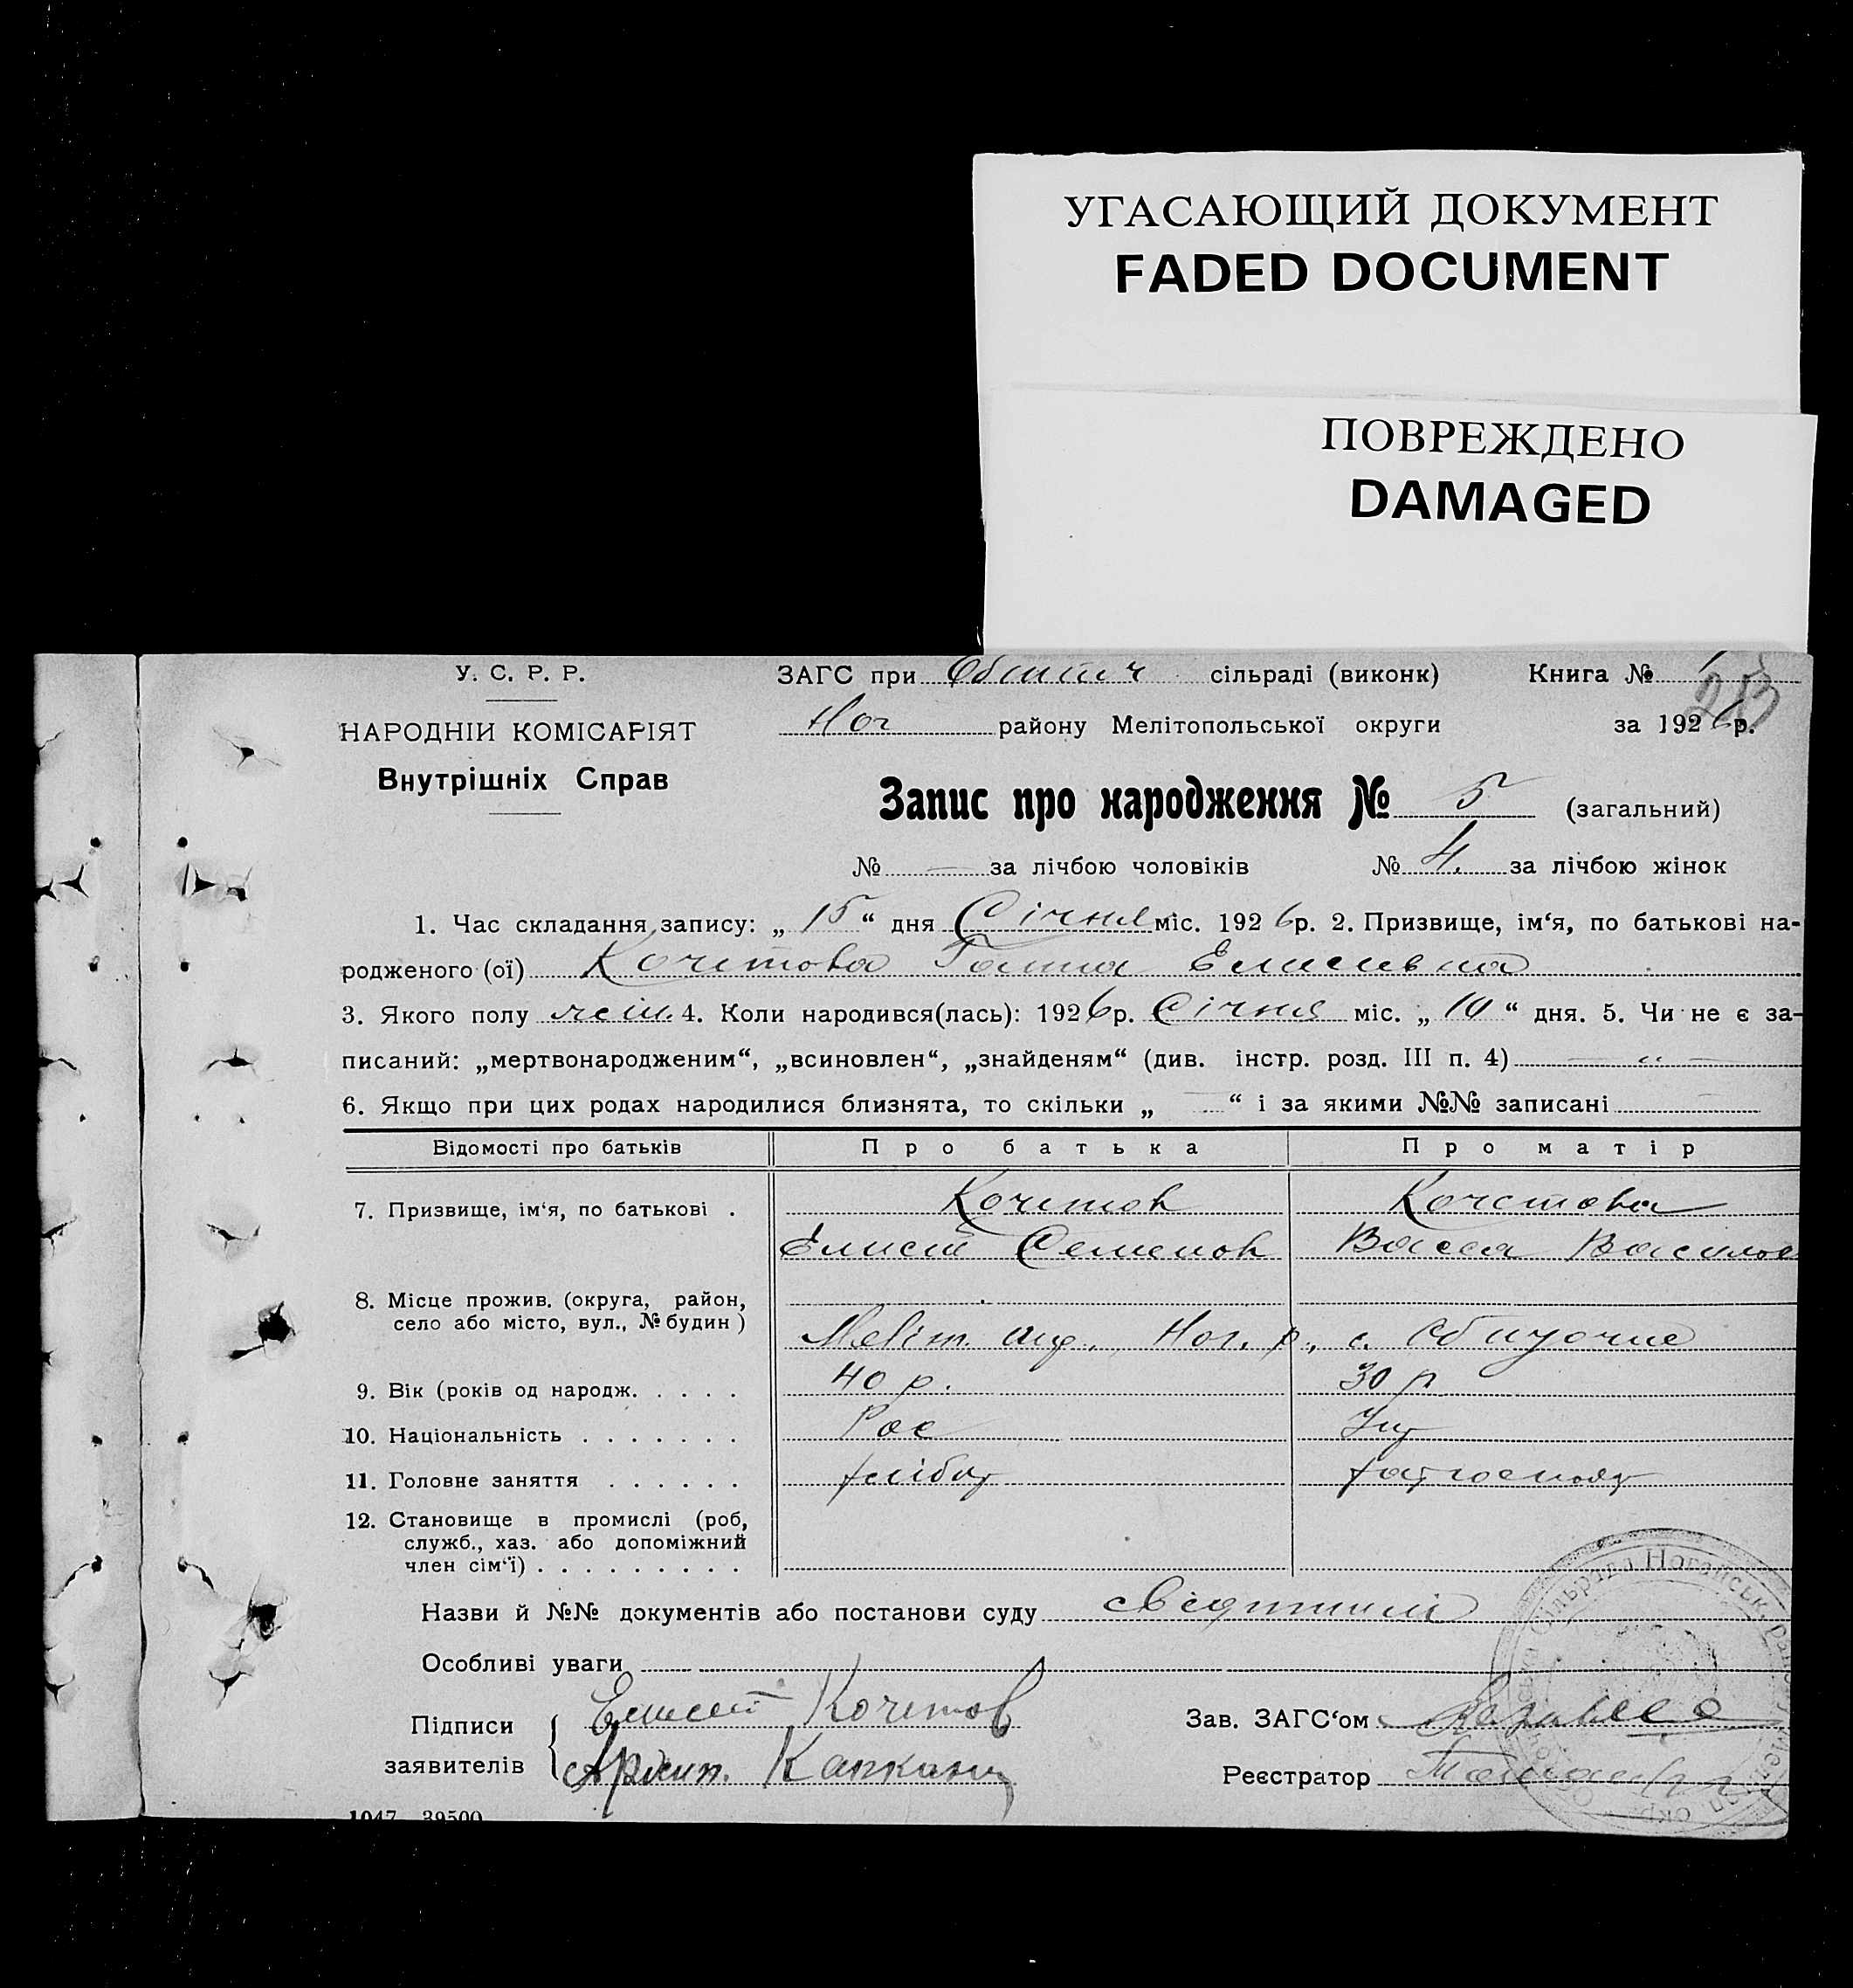 УГАСАЮЩИЙ ДОКУМЕНТ
FADED DOCUMENT
ПОВРЕЖДЕНО
DAMAGED
У. С. Р. Р.
НАРОДНІЙ КОМІСАРІЯТ
Внутрішніх Справ
ЗАГС при сільраді (виконк) Книга №
Ног району Мелітопольської округи за 1926р.
Запис про народження № 5 (загальний)
№ — за лічбою чоловіків № 4. за лічбою жінок
1. Час складання запису: „ 15 “ дня Січня міс. 1926р. 2. Призвище, ім‘я, по батькові на-
родженого (ої) Кочетова Ганна Елисеевна
3. Якого полу жін. 4. Коли народився(лась): 1926р. Січня міс. „ 10 “ дня. 5. Чи не є за-
писаний: „мертвонародженим“, „всиновлен“, „знайденям“ (див. інстр. розд. III п. 4) — “ —
6. Якщо при цих родах народилися близнята, то скільки „ — “ і за якими №№ записані —
Відомості про батьків Про батька Про матір
7. Призвище, ім‘я, по батькові . Кочетов Кочетова
Елисей Семенов Васса Васильев
8. Місце прожив. (округа, район,
село або місто, вул., № будин )
Меліт. окр., Ног. р., с. Обиточне
9. Вік (років од народж. . . . . 40 р. 30 р
10. Національність . . . . . . . Рос Укр
11. Головне заняття . . . . . . хлібор
12. Становище в промислі (роб,
служб., хаз. або допоміжний
член сім‘ї) . . . . . . . . .
Назви й №№ документів або постанови суду
Особливі уваги
Підписи
заявителів
Елисей Кочетов
Архип. Капкан
Зав. ЗАГС‘ом
Реєстратор
1047 39500